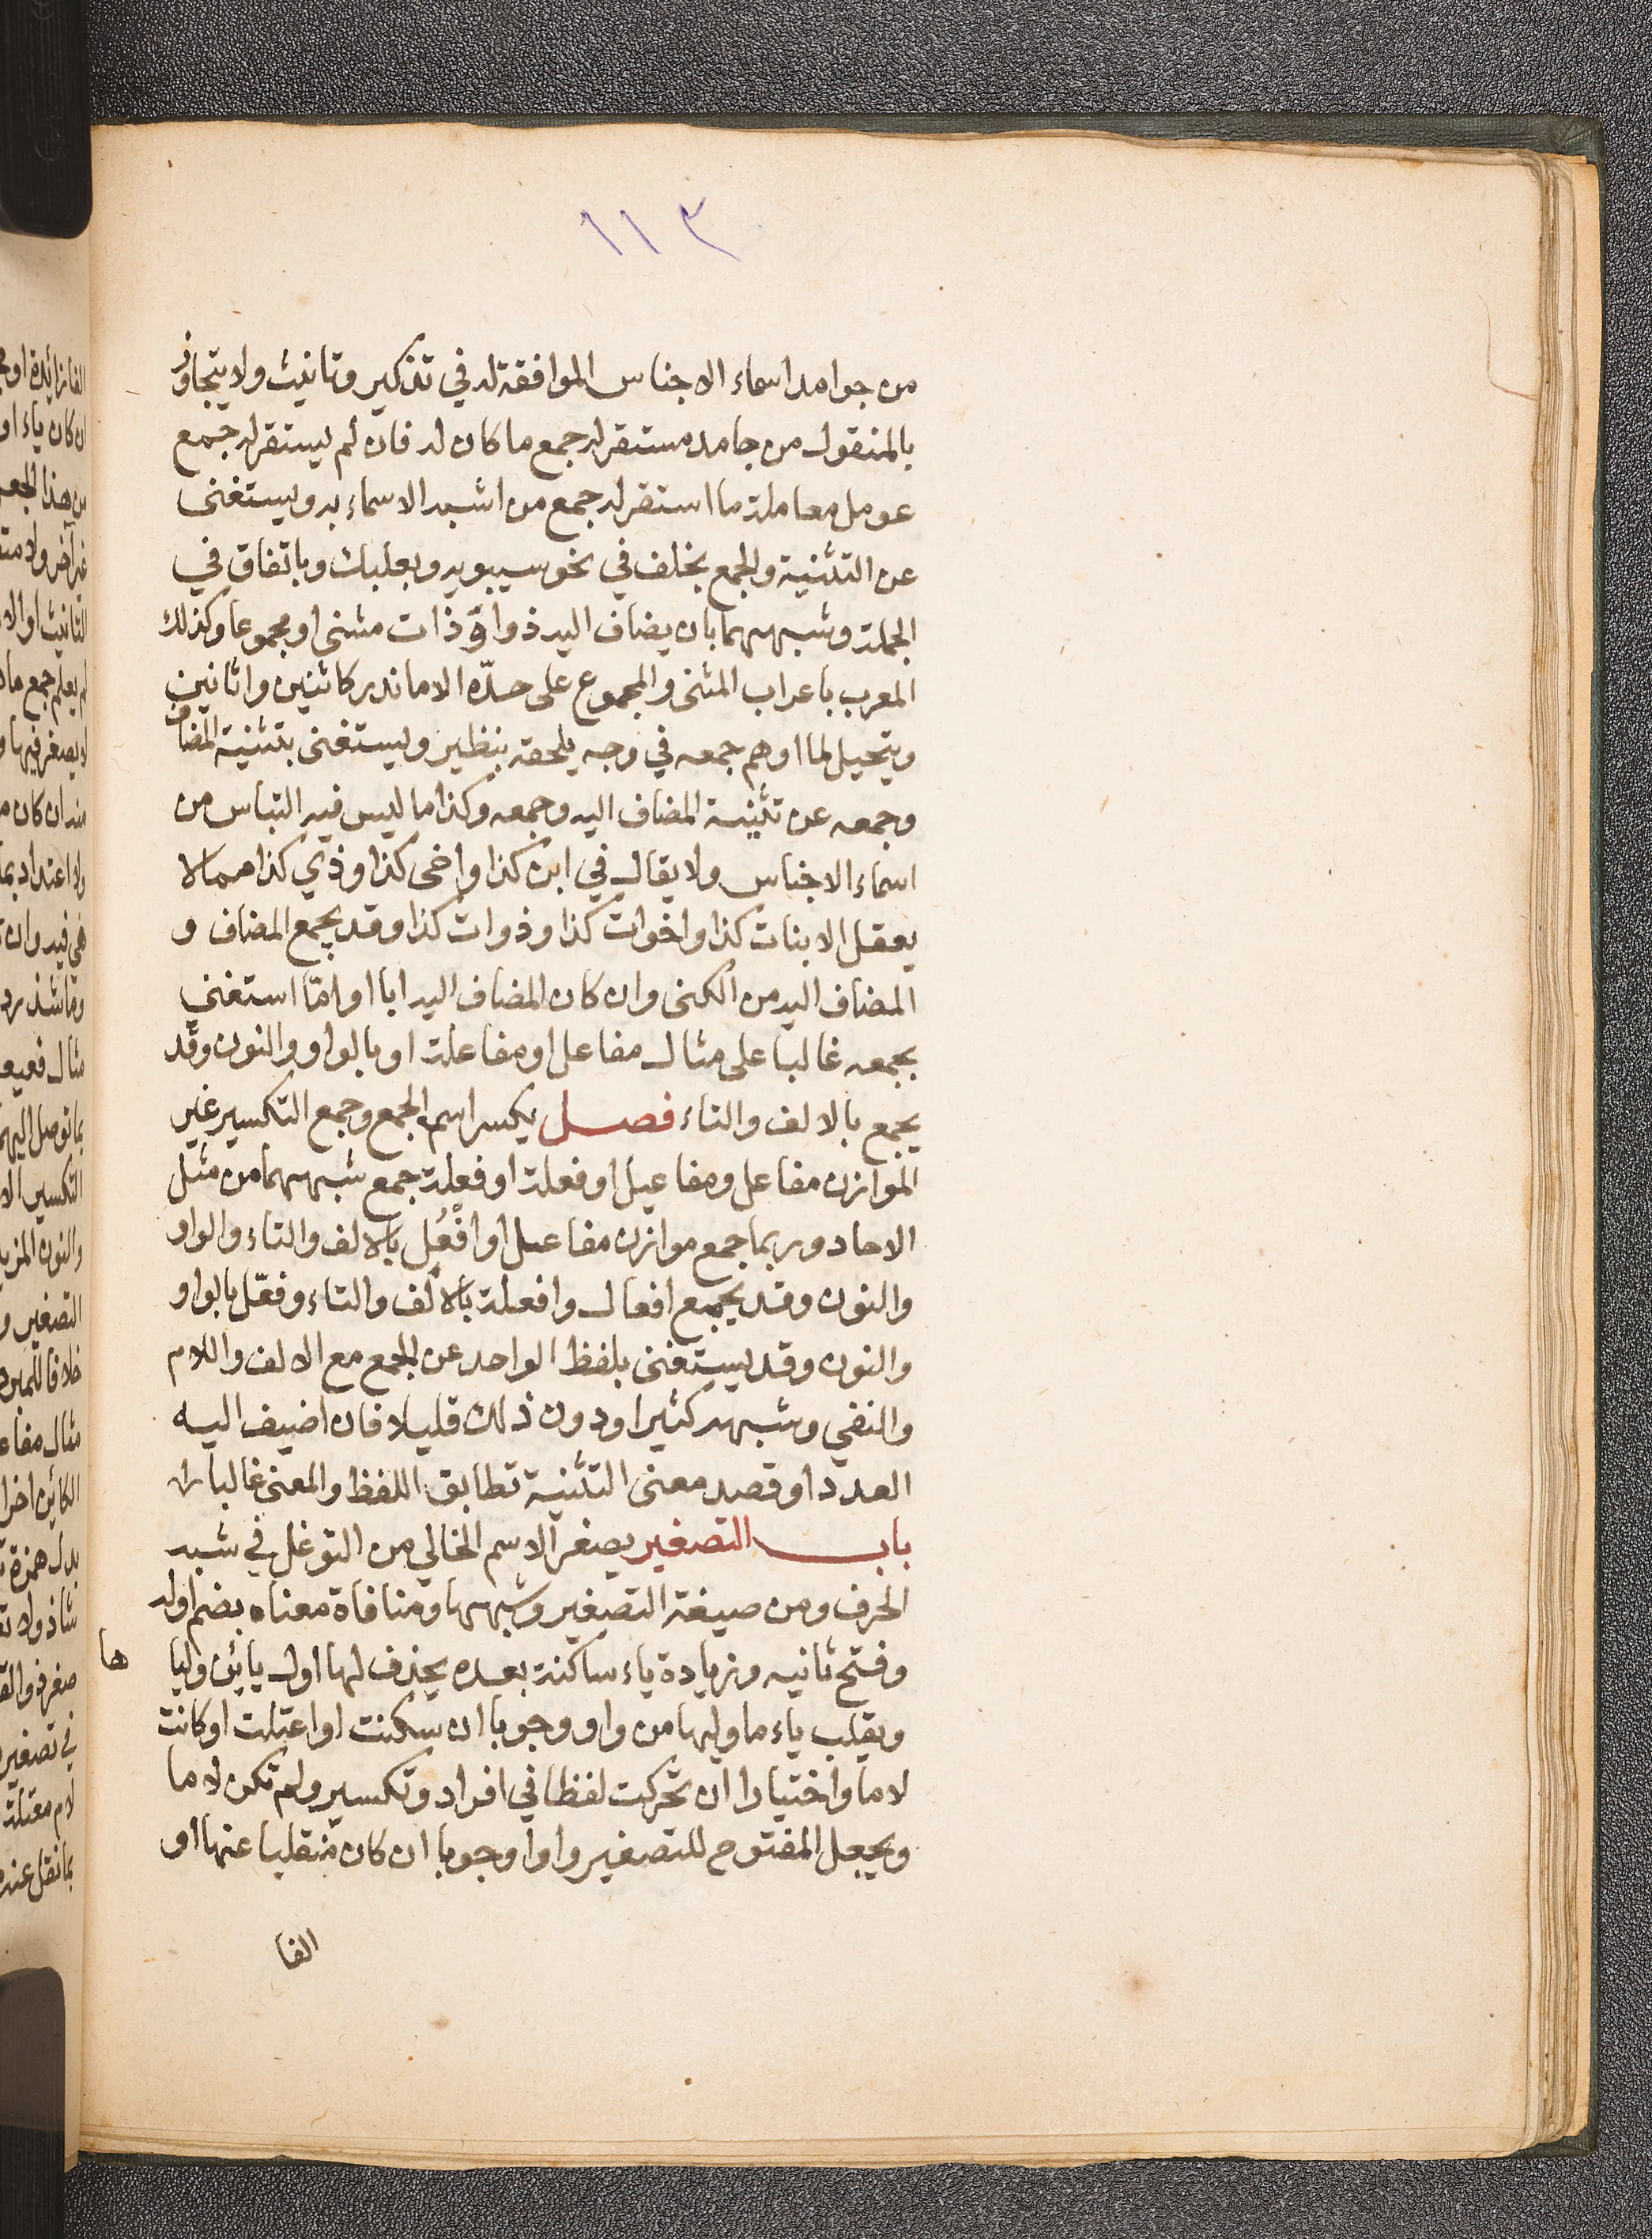 ١١٣
من جوامد اسماء الاجناس الموافقة له في تذكير وتانيث ولا يتجاوز
بالمنقول من جامد مستقر له جمع ما كان له فان لم يستقر له جمع
عومل معاملة ما استقر له جمع من اشبه الاسماء به ويستغنى
عن التثنية والجمع بخلف في نحو سيبويه وبعلبك وباتفاق في
الجملة وشبههما بان يضاف اليه ذوا وّ ذات مثنى او مجموعا وكذلك
المعرب باعراب المثنى والمجموع على حدّه الا ما ندر كاثنين واثانين
ويتحيل لما اوهم جمعه في وجه يلحقه بنظير ويستغنى بتثنية المضاف
وجمعه عن تثنية المضاف اليه وجمعه وكذا ما ليس فيه التباس من
اسماء الاجناس ولا يقال في ابن كذا واخى كذا وذي كذا مما لا
يعقل الا بنات كذا واخوات كذا وذوات كذا وقد يجمع المضاف و
المضاف اليه من الكنى وان كان المضاف اليه ابا او امّا استغنى
بجمعه غالبا على مثال مفاعل او مفاعلة او بالواو والنون وقد
يجمع بالالف والتاء فصل يكسر اسم الجمع وجمع التكسير غير
الموازن مفاعل ومفاعيل او فعلة او فعلة جمع شبههما من مثل
الاحاد وربما جمع موازن مفاعل او افْعُل بالالف والتاء والواو
والنون وقد يجمع افعال وافعلة بالالف والتاء وفعّل بالواو
والنون وقد يستغنى بلفظ الواحد عن الجمع مع الالف واللام
والنفي وشبهه كثيرا ودون ذلك قليلا فان اضيف اليه
العدد او قصد معنى التثنية تطابق اللفظ والمعنى غالبا
باب التصغير يصغر الاسم الخالي من التوغل في شبه
الحرف ومن صيغة التصغير وشبهها ومنافاة معناه بضم اوله
وفتح ثانيه وزيادة ياء ساكنة بعده يحذف لها اول يائين وليا
ها
ويقلب ياء ما وليها من واو وجوبا ان سكنت او اعتلت او كانت
لاما واختيارا ان تحركت لفظا في افراد وتكسير ولم تكن لاما
ويجعل المفتوح للتصغير واوا وجوبا ان كان منقلبا عنها او
الفا